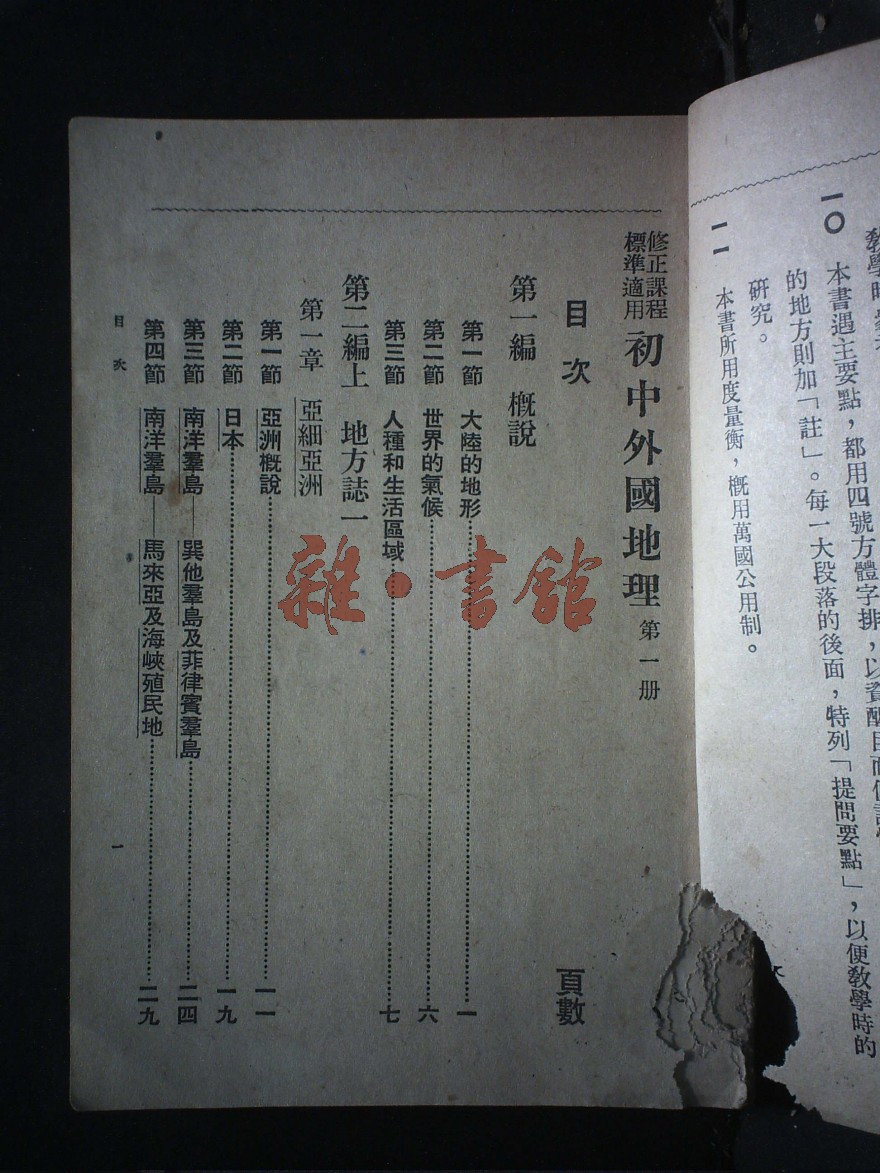 一〇　本書遇主要點，都用四號方體字排，以資醒目而便記
的地方則加「註」。每一大段落的後面，特列「提問要點」，以便教學時的
研究。
一一　本書所用度量衡，概用萬國公用制。
修正課程標準適用　初中外國地理　第一册
目次　頁數
第一編　概說
第一節　大陸的地形……一
第二節　世界的氣候……六
第三節　人種和生活區域……七
第二編上　地方誌一
第一章　亞細亞洲
第一節　亞洲概說……一一
第二節　日本……一九
第三節　南洋羣島——巽他羣島及菲律賓羣島……二四
第四節　南洋羣島——馬來亞及海峽殖民地……二九
目次　一
雜·書館